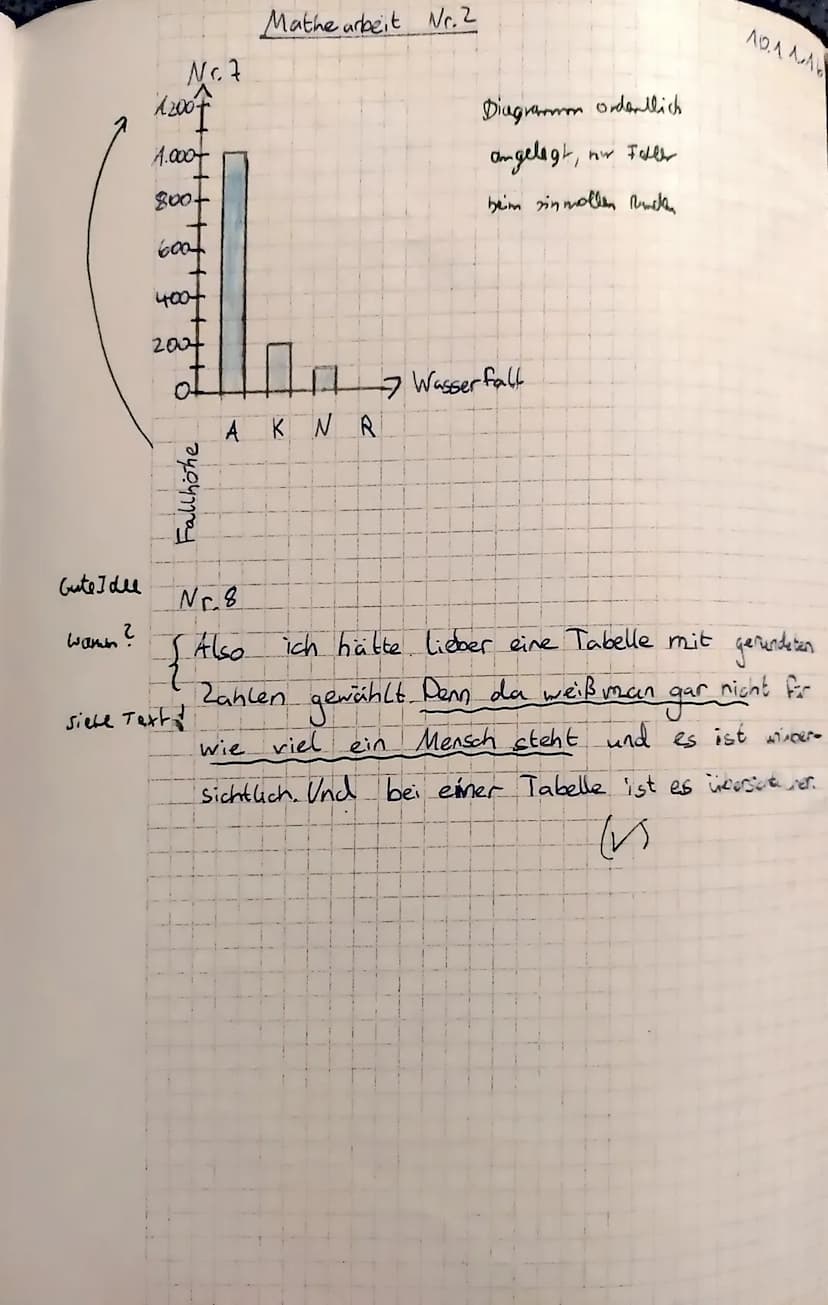 Mathearbeit Nr. 2
10.11.16
Nr. 7
1200
1.000
800
600
400
200
0
Wasserfall
A K N R
Fallhöhe
Diagramm ordentlich
angelegt, nur Fehler
beim sinnvollen Runden
Gute Idee
Nr. 8
warum?
Also ich hätte lieber eine Tabelle mit gerundeten
Zahlen gewählt. Denn da weiß man gar nicht für
siehe Text!
wie viel ein Mensch steht und es ist
sichtlich. Und bei einer Tabelle ist es
(✓)